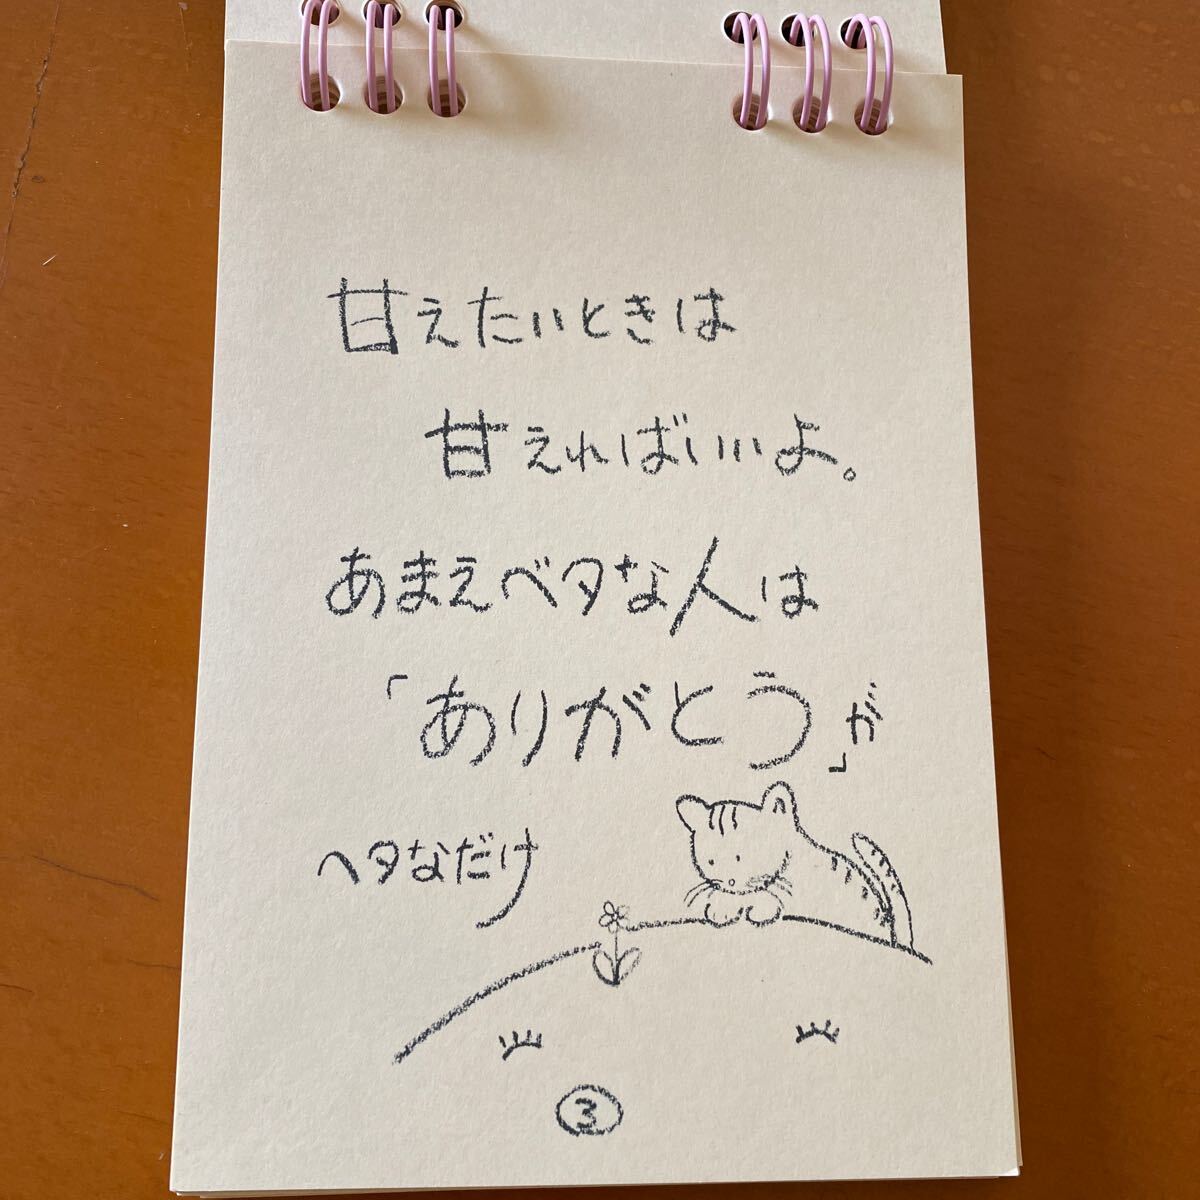 甘えたいときは
甘えればいいよ。
あまえベタな人は
「ありがとう」が
ヘタなだけ
③